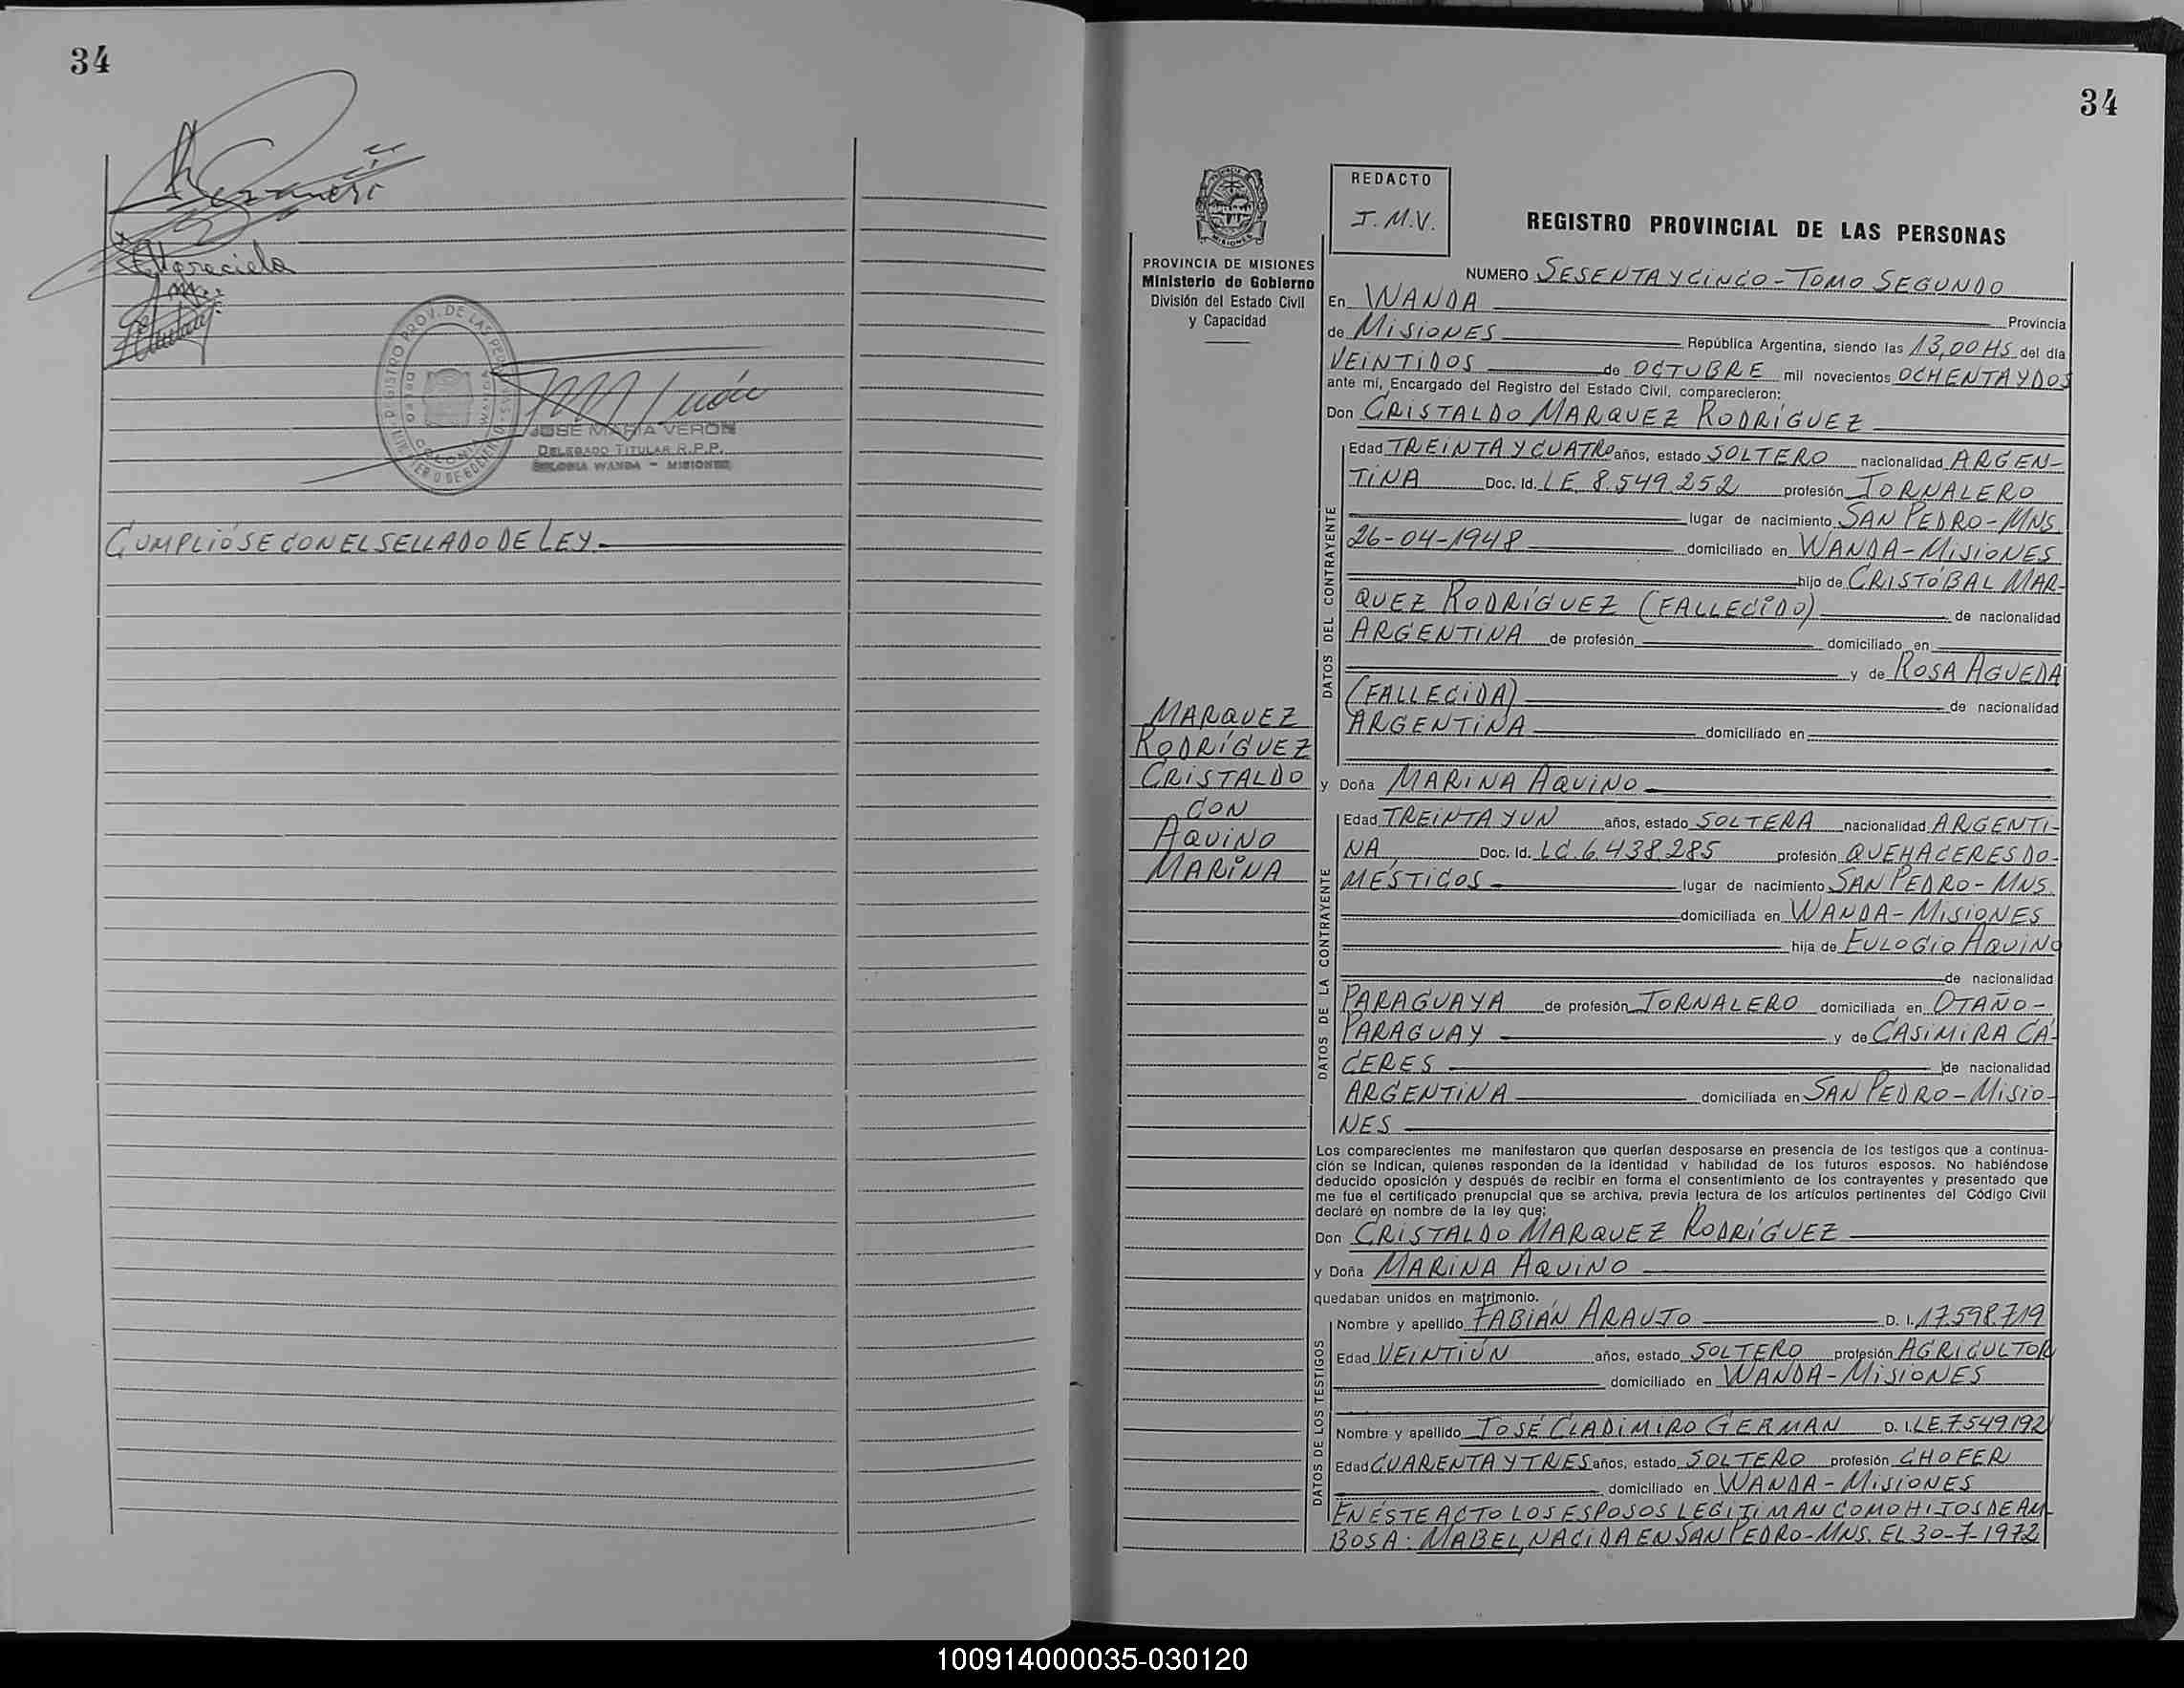 34
Graciela
REGISTRO PROV. DE LAS PERSONAS
COLONIA WANDA
JOSE MARIA VERON
DELEGADO TITULAR R.P.P.
COLONIA WANDA - MISIONES
CUMPLIÓSE CON EL SELLADO DE LEY.
34
PROVINCIA DE MISIONES
Ministerio de Gobierno
División del Estado Civil
y Capacidad
REDACTO
J.M.V.
REGISTRO PROVINCIAL DE LAS PERSONAS
MARQUEZ
RODRÍGUEZ
CRISTALDO
CON
AQUINO
MARINA
NUMERO SESENTA Y CINCO - TOMO SEGUNDO
En WANDA Provincia
de MISIONES República Argentina, siendo las 13,00 HS del día
VEINTIDOS de OCTUBRE mil novecientos OCHENTA Y DOS
ante mí, Encargado del Registro del Estado Civil, comparecieron:
Don CRISTALDO MARQUEZ RODRÍGUEZ
DATOS DEL CONTRAYENTE
Edad TREINTA Y CUATRO años, estado SOLTERO nacionalidad ARGEN-
TINA Doc. Id. LE 8.549.252 profesión JORNALERO
lugar de nacimiento SAN PEDRO - MNS.
26-04-1948 domiciliado en WANDA - MISIONES
hijo de CRISTÓBAL MAR-
QUEZ RODRÍGUEZ (FALLECIDO) de nacionalidad
ARGENTINA de profesión domiciliado en
y de ROSA AGUEDA
(FALLECIDA) de nacionalidad
ARGENTINA domiciliado en
y Doña MARINA AQUINO
DATOS DE LA CONTRAYENTE
Edad TREINTA Y UN años, estado SOLTERA nacionalidad ARGENTI-
NA Doc. Id. LC. 6.438.285 profesión QUEHACERES DO-
MÉSTICOS lugar de nacimiento SAN PEDRO - MNS.
domiciliada en WANDA - MISIONES
hija de EULOGIO AQUINO
de nacionalidad
PARAGUAYA de profesión JORNALERO domiciliada en OTAÑO -
PARAGUAY y de CASIMIRA CÁ-
CERES de nacionalidad
ARGENTINA domiciliada en SAN PEDRO - MISIO-
NES
Los comparecientes me manifestaron que querían desposarse en presencia de los testigos que a continua-
ción se indican, quienes responden de la identidad y habilidad de los futuros esposos. No habiéndose
deducido oposición y después de recibir en forma el consentimiento de los contrayentes y presentado que
me fue el certificado prenupcial que se archiva, previa lectura de los artículos pertinentes del Código Civil
declaré en nombre de la ley que:
Don CRISTALDO MARQUEZ RODRÍGUEZ
y Doña MARINA AQUINO
quedaban unidos en matrimonio.
DATOS DE LOS TESTIGOS
Nombre y apellido FABIÁN ARAUJO D. I. 17.598.719
Edad VEINTIÚN años, estado SOLTERO profesión AGRICULTOR
domiciliado en WANDA - MISIONES
Nombre y apellido JOSÉ CLADIMIRO GERMAN D. I. LE.7549192
Edad CUARENTA Y TRES años, estado SOLTERO profesión CHOFER
domiciliado en WANDA - MISIONES
EN ÉSTE ACTO LOS ESPOSOS LEGITIMAN COMO HIJOS DE AM-
BOS A: MABEL, NACIDA EN SAN PEDRO - MNS. EL 30-7-1972
100914000035-030120